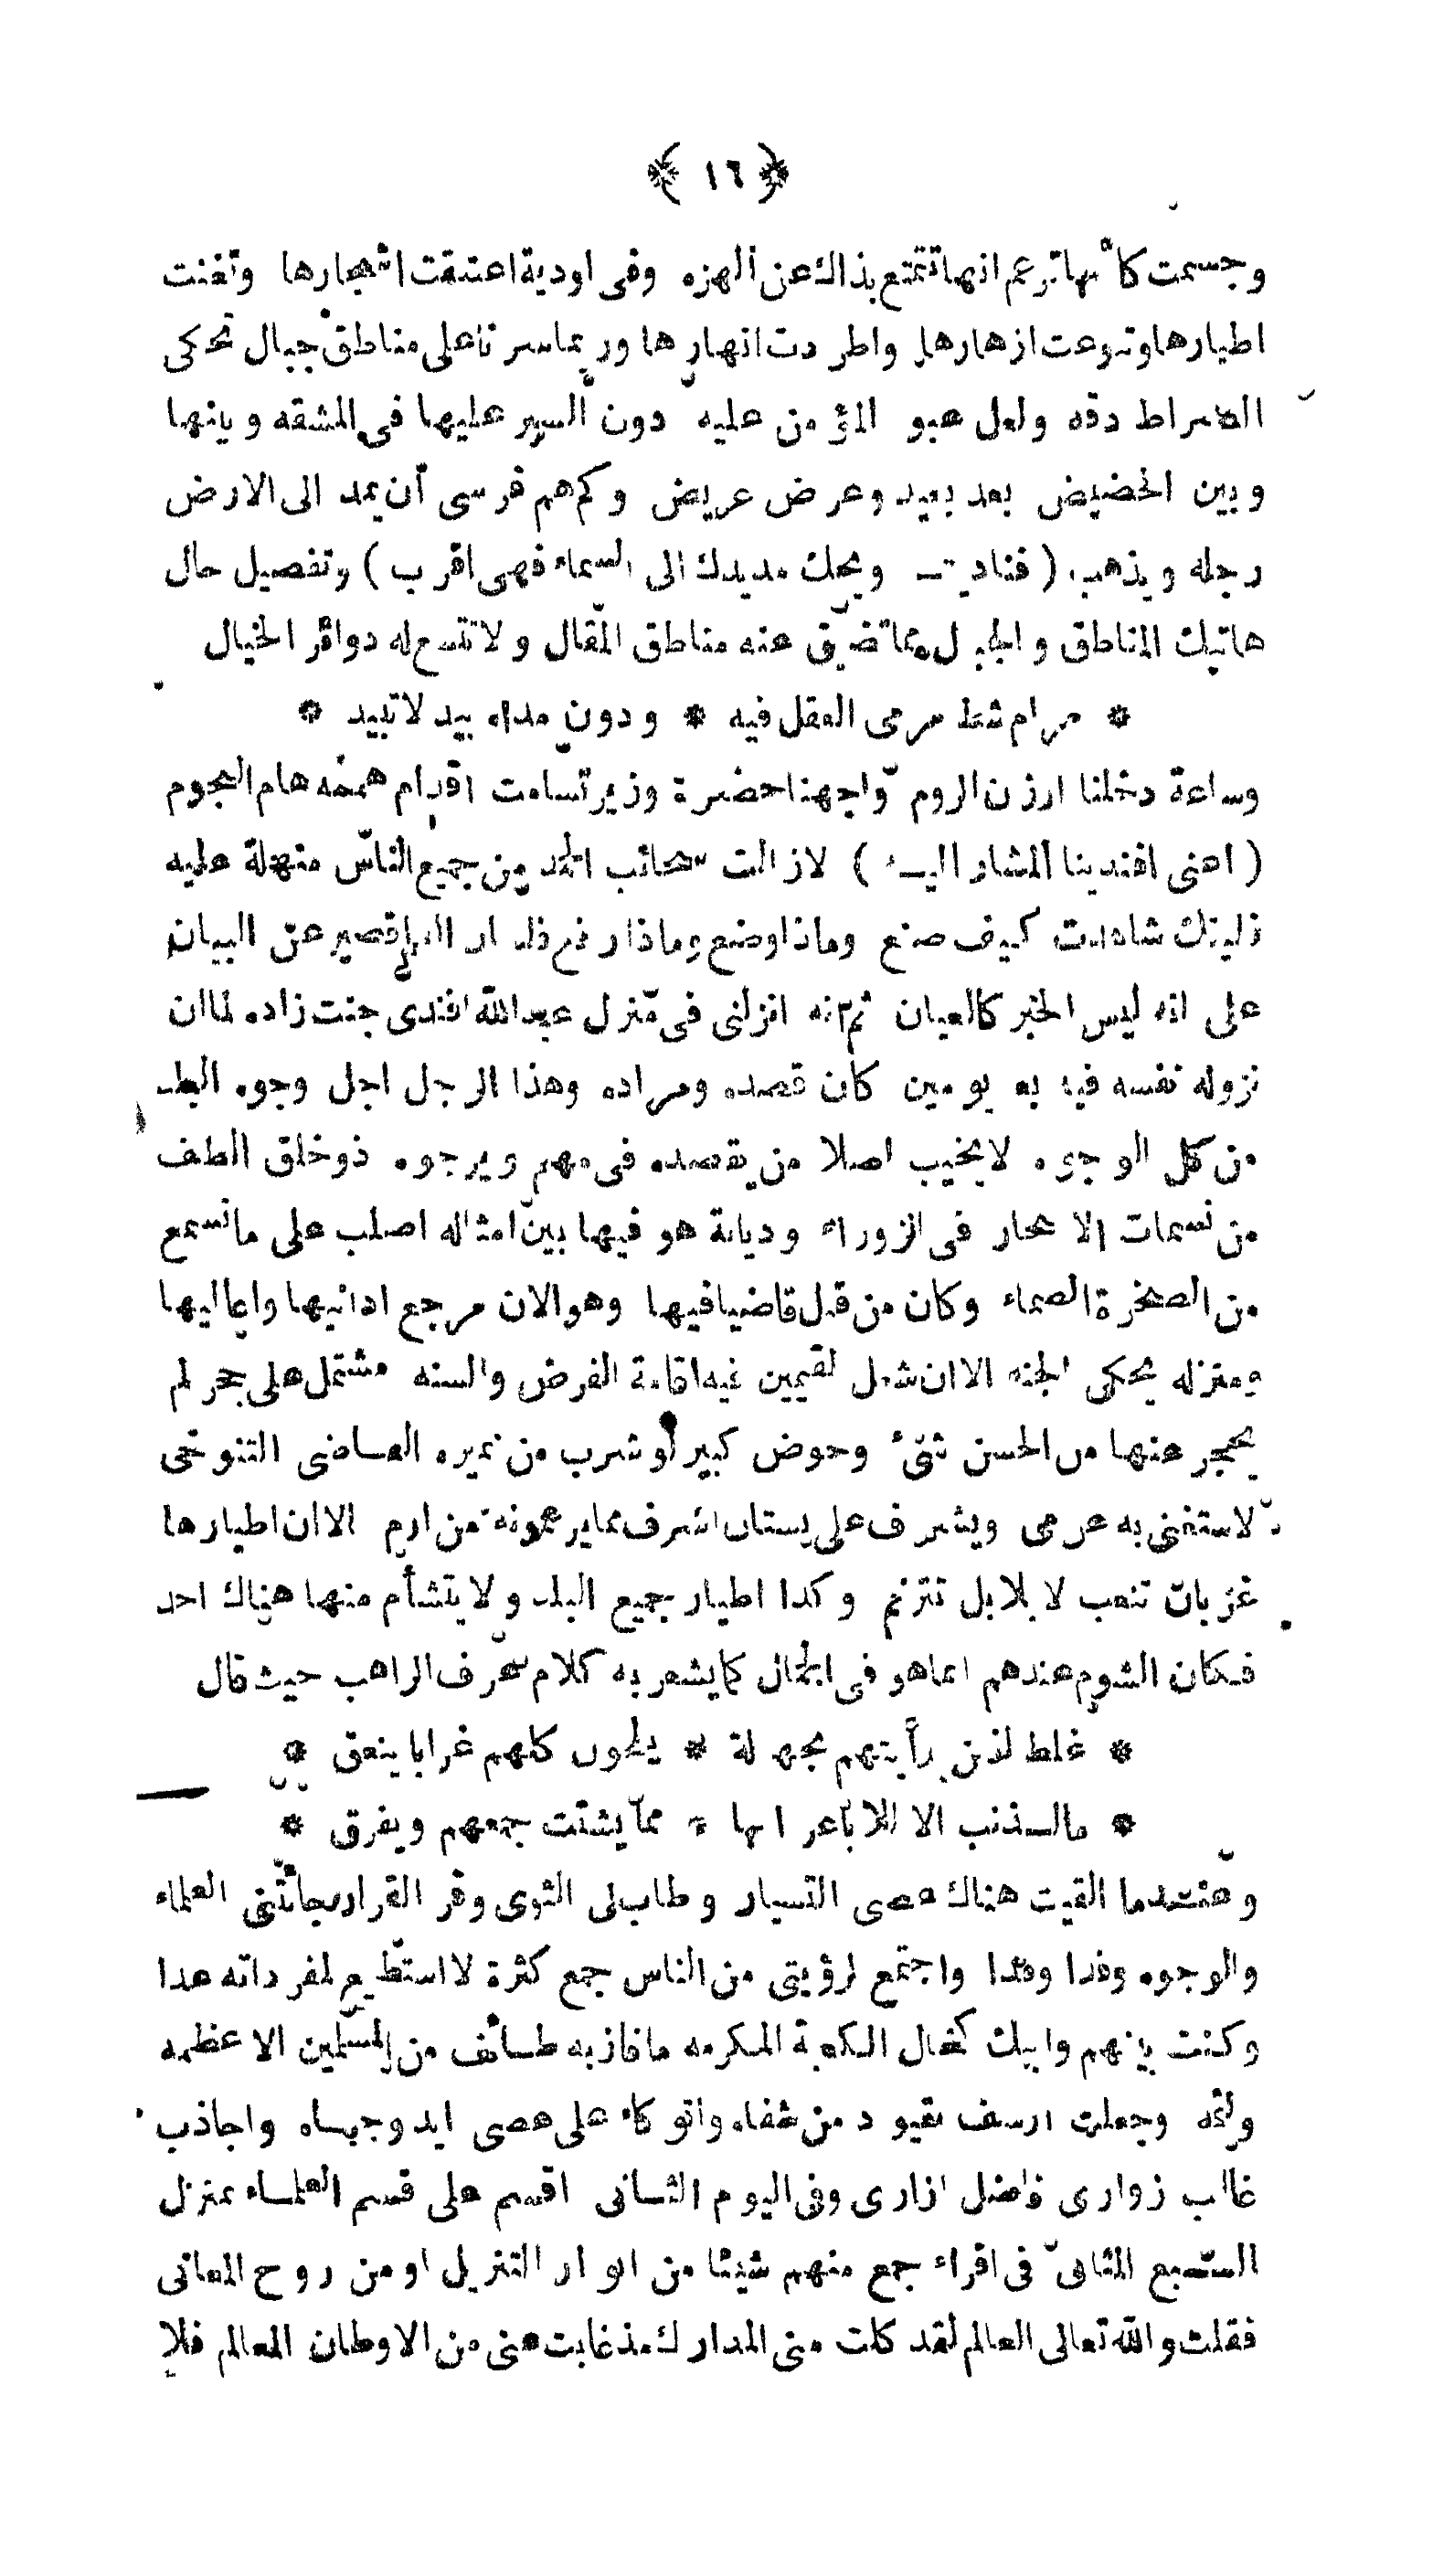 ﴿ ١٦ ﴾
وجسمت كأنها تزعم انها تتمتع بذاك عن الهزه وفى اودية اعتنقت اشجارها وتغنت
اطيارها وتنوعت ازهارها واطردت انهارها وربما سرنا على مناطق جبال تحكى
الصراط دقه ولعل عبور المؤمن عليه دون السير عليها فى المشقه وبينها
وبين الحضيض بعد بعيد وعرض عريض وكم هم فرسى أن يمد الى الارض
رجله ويذهب (فناديته ويحك مد يدك الى السماء فهى اقرب) وتفصيل حال
هاتيك المناطق والجبال مما تضيق عنه مناطق المقال ولا تتسع له دوائر الخيال
* مرام شط مرمى العقل فيه * ودون مداه بيد لا تبيد *
وساعة دخلنا ارزن الروم واجهنا حضرة وزير تسامت اقدام هممه هام النجوم
(اعنى افندينا المشار اليه) لا زالت سحائب الحمد من جميع الناس منهلة عليه
فليتك شاهدت كيف صنع وماذا وضع وماذا رفع قصير عن البيان
على انه ليس الخبر كالعيان ثم انه انزلنى فى منزل عبد الله افندى جنت زاده لما ان
نزوله نفسه فيه به يومين كان قصده ومراده وهذا الرجل اجل وجوه البلد
من كل الوجوه لا يخيب اصلا من يقصده فى مهم ويرجوه ذو خلق الطف
من نسمات الاسحار فى الزوراء وديانة هو فيها بين امثاله اصلب على ما نسمع
من الصخرة الصماء وكان من قبل قاضيا فيها وهو الان مرجع ادانيها واعاليها
ومنزله يحكى الجنه الا ان شغل المقيمين فيه اقامة الفرض والسنه مشتمل على حجر لم
يحجر عنها من الحسن شئ وحوض كبير لو شرب من نميره القاضى التنوخى
لاستغنى به عن مى ويشرف على بستان اشرف مما يزعمونه من ارم الا ان اطيارها
غربان تنعب لا بلابل تترنم وكذا اطيار جميع البلد ولا يتشأم منها هناك احد
فكان الشوم عندهم انما هو فى الجمال كما يشعر به كلام الراهب حيث قال
* غلط الذين رأيتهم بجهالة * يلحون كلهم غرابا ينعق *
* ما الذنب الا للاباعر انها * مما يشتت جمعهم ويفرق *
وعندما القيت هناك عصى التسيار وطاب لى الثوى وقر القرار جائتنى العلماء
والوجوه وفدا وفدا واجتمع لرؤيتى من الناس جمع كثرة لا استطيع لمفرداته عدا
وكنت بينهم وابيك كخال الكعبة المكرمه ما فاز به طائف من المسلمين الا عظمه
ولثمه وجعلت ارسف بقيود من شفاه واتوكاء على عصى ايد وجباه واجاذب
غالب زوارى فاضل ازارى وفى اليوم الثانى اقسم على قسم العلماء بمنزل
السبع المثانى فى اقراء جمع منهم شيئا من انوار التنزيل او من روح المعانى
فقلت والله تعالى العالم لقد كلت منى المدارك مذ غابت عنى من الاوطان المعالم فلا